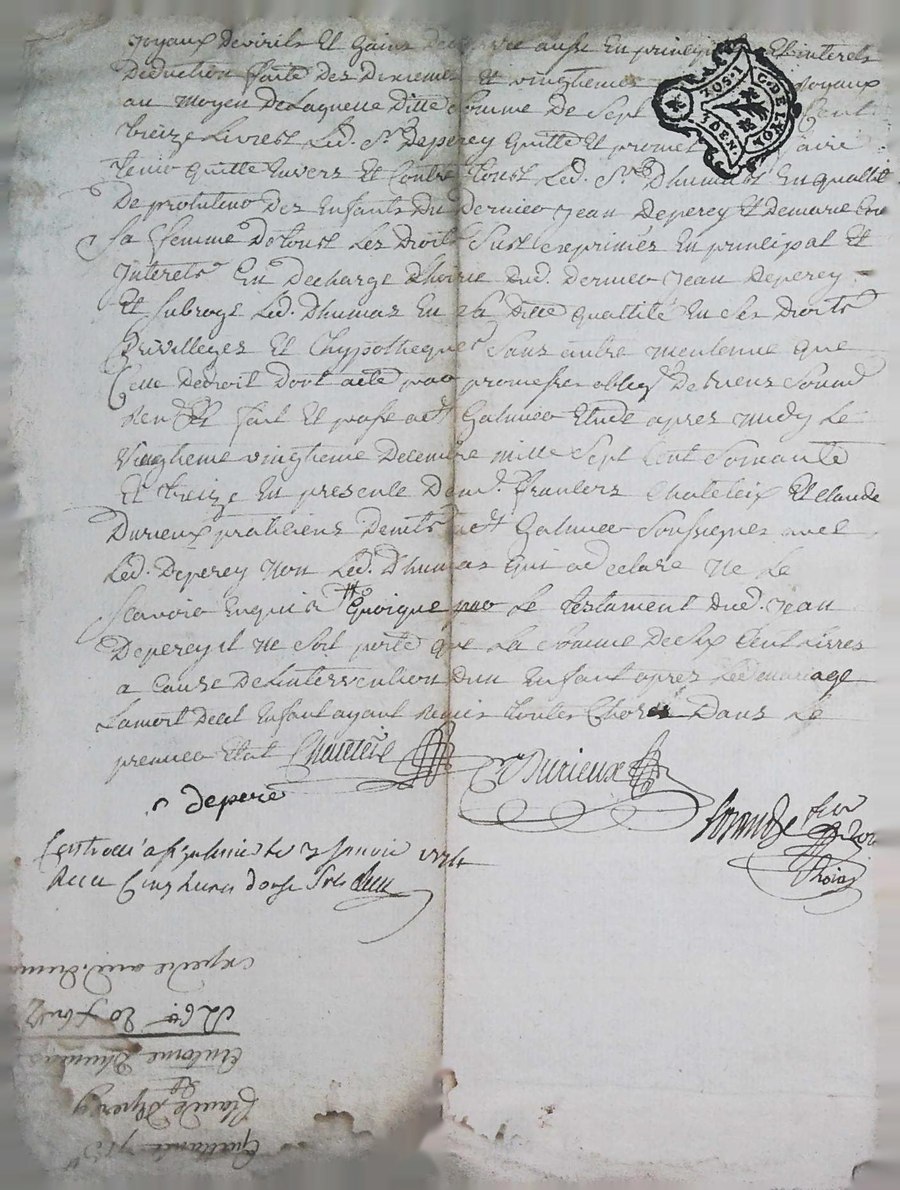 joyaux de virils Et Gains de survie aussi En principal Et interets
Deduction faite des dixiemes Et vingtiemes joyaux
au moyen de Laquelle ditte somme De Sept Cent
treize Livres Led. Sr. Deperey quitte Et promet faire
tenir quitte Envers Et Contre tous Led. Sr. Dhumas En qualité
De protuteur des Enfants du dernier jean Deperey Et de marie
sa femme De tous Les Droits Susd exprimés En principal Et
jnterets En decharge dhoirie dud. dernier jean deperey
Et subroge Led. Dhumas En sa Ditte qualtité En ses Droits
privilleges Et hypotheques sans autre meutenue que
Celle de droit dont acte par promesses oblig. De biens Soumd
renon Fait Et passé a Galmier Etude apres midy Le
vingtieme vingtieme Decembre mille Sept Cent Soixante
Et treize En presence De mes. Chateleix Et Claude
Durieux praticiens demts. Galmier Soussignés avec
Led. Deperey non Led. Dhumas qui a declaré ne Le
scavoir Enquis Quoique par Le testament dud. jean
Deperey il ne soit porté que La somme De six Cent Livres
a Cause De Lintervention dun Enfant apres Led mariage
La mort dudit Enfant ayant remis toutes Choses Dans Le
premier Etat
C. Durieux
deperé
Controllé a St galmier le 3 janvier 1774
Recu Cinq livres d'onse sols
ZOS.1
G. DE LYON
2 DEN
Quittance
Claude Deperey
Et
Antoine Dhumas
expedié aud. Dhumas